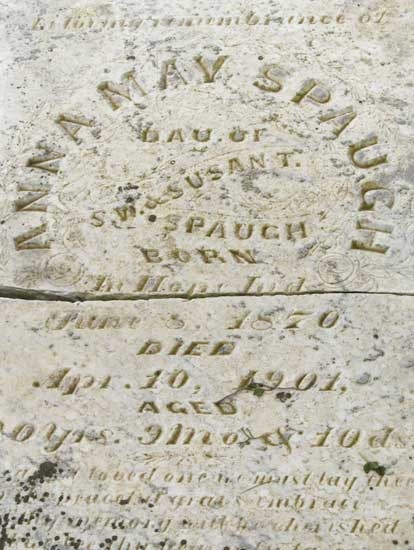 In loving remembrance of
ANNA MAY SPAUGH
DAU. OF
S.W. & SUSAN T.
SPAUGH
BORN
In Hope Ind.
June 8, 1870.
DIED
Apr. 10, 1901.
AGED
0 Yrs. 9 Mo. & 10 ds
loved one we must lay thee
peaceful graves embrace
memory will be cherished